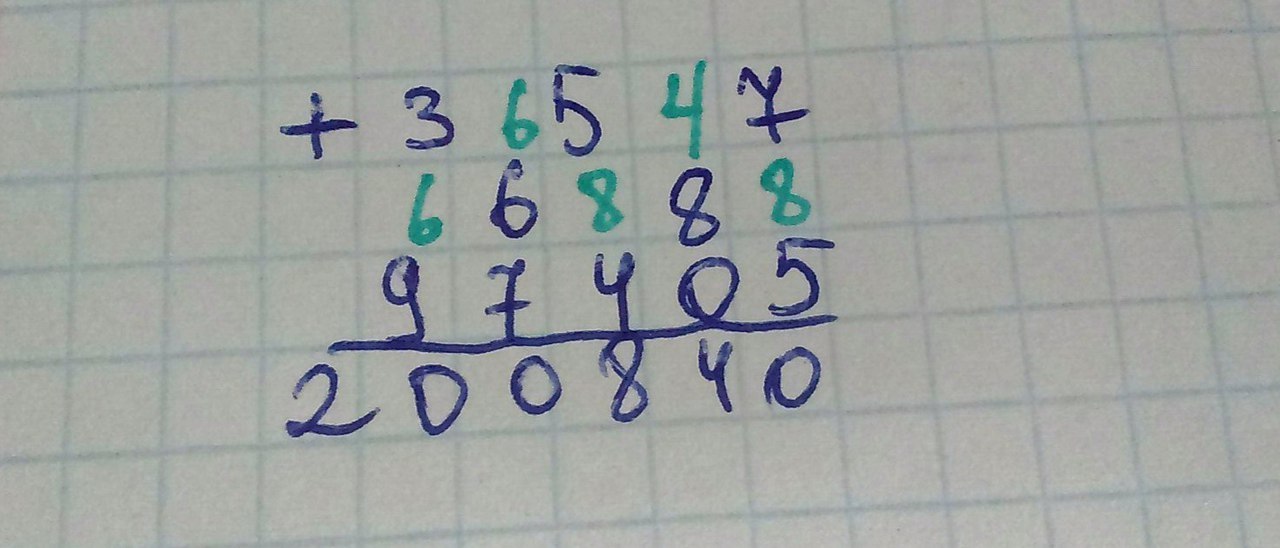 + 3 6 5 4 7
6 6 8 8 8
9 7 4 0 5
2 0 0 8 4 0